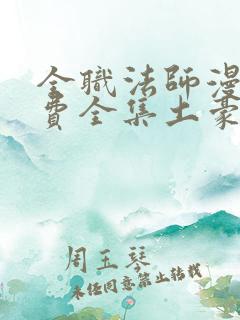 全职法师漫
费全集土豪
周玉琴
未经同意禁止转载